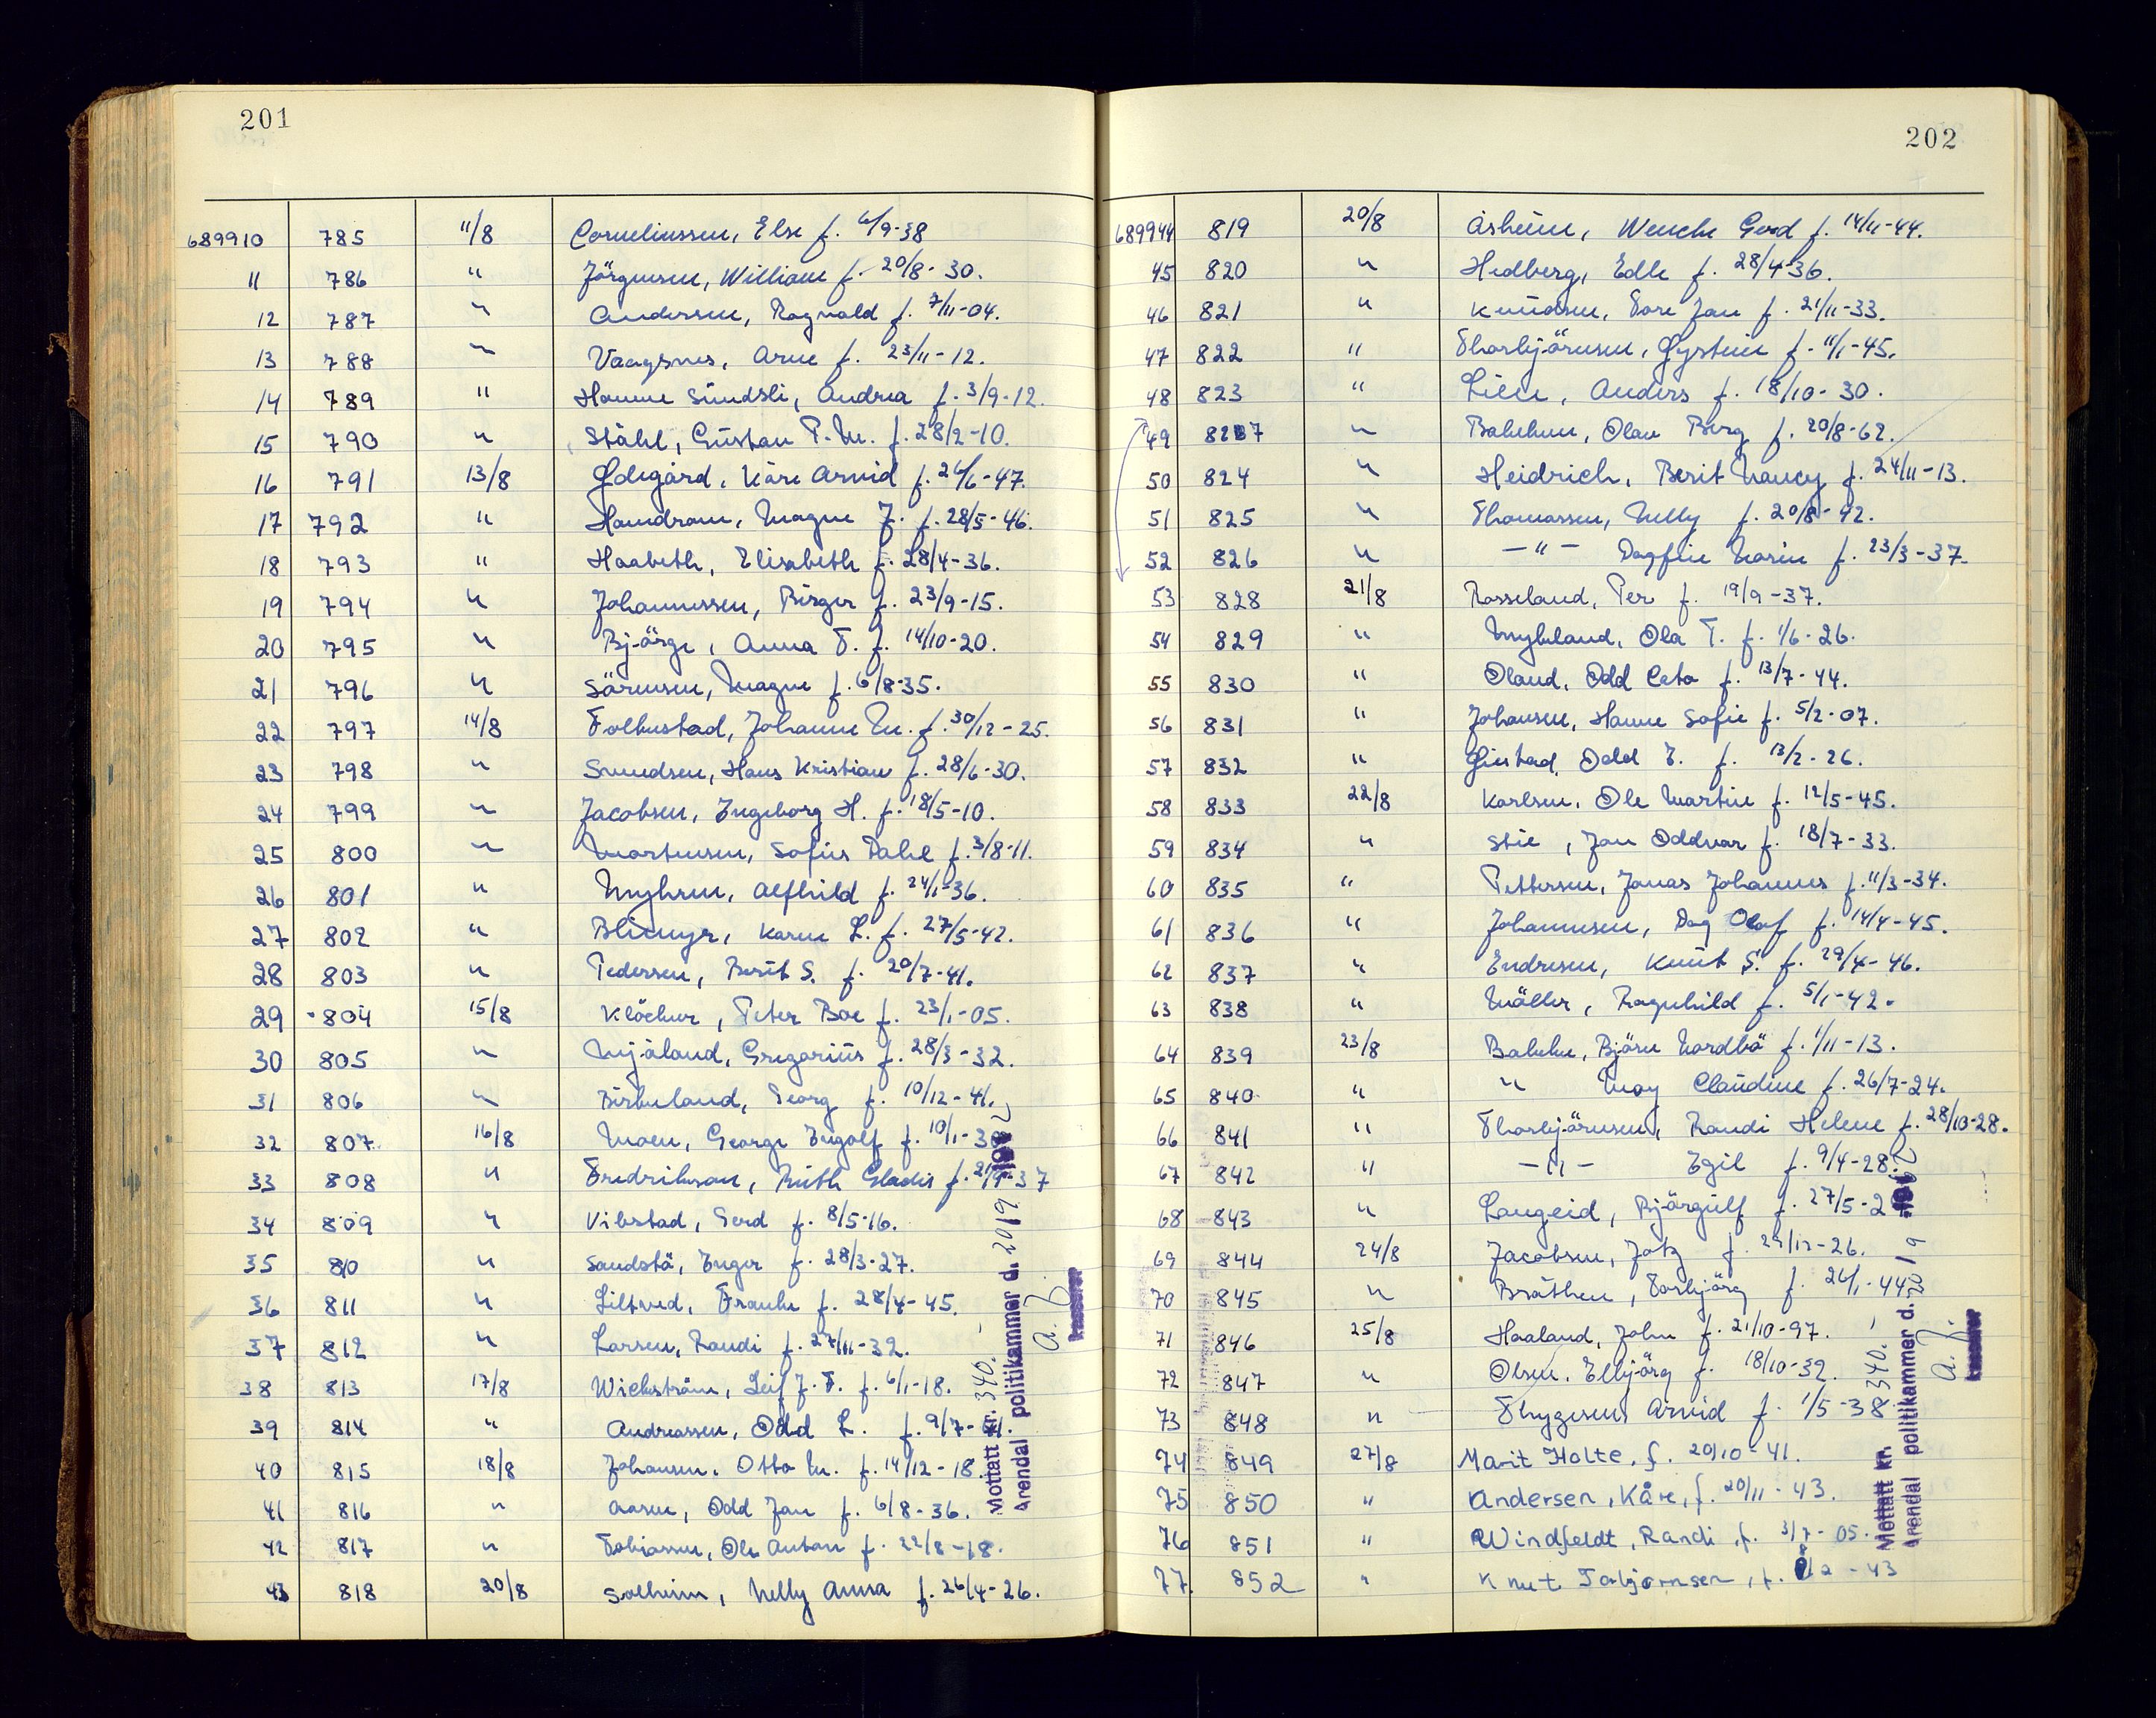 201
689910 785 11/8 Corneliussen, Else f. 6/9-38
11 786 " Jörgensen, William f. 20/8-30.
12 787 " Andersen, Ragnvald f. 7/11-04.
13 788 " Vaagsnes, Arne f. 23/11-12.
14 789 " Hamre Sundsli, Andrea f. 3/9-12.
15 790 " Ståhl, Gustav P. M. f. 28/2-10.
16 791 13/8 Ødegård, Kåre Arvid f. 26/1-47.
17 792 " Hamdram, Magne J. f. 28/5-46.
18 793 " Haabeth, Elisabeth f. 28/4-36.
19 794 " Johannessen, Birger f. 23/9-15.
20 795 " Björge, Anna T. f. 14/10-20.
21 796 " Sörensen, Magne f. 6/8-35.
22 797 14/8 Folkestad, Johanne M. f. 30/12-25.
23 798 " Svendsen, Hans Kristian f. 28/6-30.
24 799 " Jacobsen, Ingeborg H. f. 18/5-10.
25 800 " Mortensen, Sofus Dahl f. 3/8-11.
26 801 " Myhren, Alfhild f. 24/1-36.
27 802 " Blimyr, Karen L. f. 27/5-42.
28 803 " Pedersen, Berit S. f. 20/7-41.
29 804 15/8 Klöcker, Peter Boe f. 23/1-05.
30 805 " Mjåland, Gregorius f. 28/3-32.
31 806 " Birkeland, Georg f. 10/12-41.
32 807 16/8 Moen, George Ingolf f. 10/1-
33 808 " Fredriksen, Ruth Gladis f. 21/9-37
34 809 " Vibstad, Gerd f. 8/5-16.
35 810 " Sandstö, Inger f. 28/3-27.
36 811 " Liltved, Frauke f. 28/4-45.
37 812 " Larsen, Randi f. 27/11-32.
38 813 17/8 Wickström, Leif J. F. f. 6/1-18.
39 814 " Andreassen, Odd L. f. 9/7-41.
40 815 18/8 Johansen, Otto M. f. 14/12-18.
41 816 " Aasen, Odd Jan f. 6/8-36.
42 817 " Tobiassen, Ole Anton f. 22/8-18.
43 818 20/8 Solheim, Nelly Anna f. 26/4-26.
Mottatt kr. 340.-
Arendal politikammer d. 20/9
a. J.
kasserer
202
689944 819 20/8 Åsheim, Wenche Gerd f. 14/11-44.
45 820 " Hedberg, Edle f. 28/4-36.
46 821 " Knudsen, Tore Jan f. 21/11-33.
47 822 " Thorbjörnsen, Øystein f. 11/1-45.
48 823 " Liene, Anders f. 18/10-30.
49 827 " Bakken, Olav Berg f. 20/8-62.
50 824 " Heidrich, Berit Nancy f. 24/11-13.
51 825 " Thomassen, Nelly f. 20/8-42.
52 826 " —"— Dagfin Marin f. 23/3-37.
53 828 21/8 Rosseland, Per f. 19/9-37.
54 829 " Mykland, Ola T. f. 1/6-26.
55 830 " Oland, Odd Cato f. 13/7-44.
56 831 " Johansen, Hanne Sofie f. 5/2-07.
57 832 " Gjestad, Odd E. f. 13/2-26.
58 833 22/8 Karlsen, Ole Martin f. 12/5-45.
59 834 " Stie, Jan Oddvar f. 18/7-33.
60 835 " Pettersen, Jonas Johannes f. 11/3-34.
61 836 " Johannesen, Dag Olaf f. 14/4-45.
62 837 " Endresen, Knut S. f. 29/4-46.
63 838 " Möller, Ragnhild f. 5/1-42.
64 839 23/8 Bakke, Björn Nordbö f. 1/11-13.
65 840 " " May Claudine f. 26/7-24.
66 841 " Thorbjörnsen, Randi Helene f. 28/10-28.
67 842 " —"— Egil f. 9/4-28.
68 843 " Langeid, Björgulf f. 27/5-2
69 844 24/8 Jacobsen, Jotz f. 29/12-26.
70 845 " Bråthen, Torbjörg f. 26/1-44.
71 846 25/8 Haaland, John f. 21/10-97.
72 847 " Olsen, Ellbjörg f. 18/10-32.
73 848 " Thygesen Arvid f. 1/5-38
74 849 27/8 Marit Holte, f. 20/10-41.
75 850 " Andersen, Kåre, f. 20/11-43.
76 851 " Windfeldt, Randi, f. 3/7-05.
77. 852 " Knut Torbjørnsen, f. /2-43
Mottatt kr. 340.-
Arendal politikammer d. /9
a. J.
kasserer